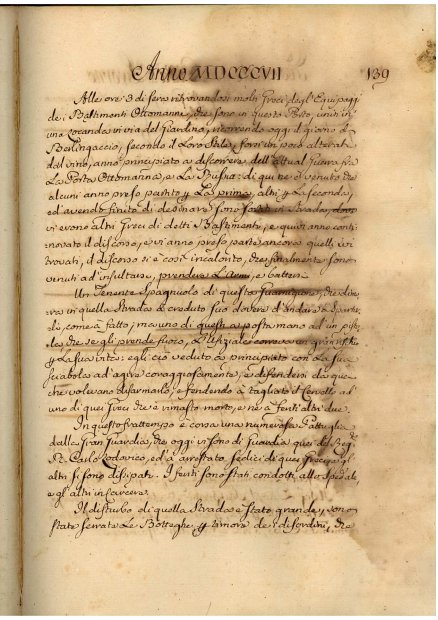 Anno MDCCCVII 139
Alle ore 3 di sera ritrovandosi molti Greci degl'Equipaggi
de i Bastimenti Ottomanni, che sono in questo Porto, uniti in
una Locanda in via del Giardino, ricorrendo oggi il giorno di
Berlingaccio, secondo il Loro Stile, forsi un poco alterati
dal vino, anno principiato a discorrere dell'Attual Guerra fra
La Porta Ottomanna, e La Russia: di qui ne è venuto che
alcuni anno preso partito p La prima, altri p La Seconda,
ed avendo finito di desinare sono sortiti in Strada, dove
vi erono altri Greci di detti Bastimenti, e quivi anno conti-
novato il discorso, e vi anno preso parte ancora quelli ivi
trovati, il discorso si è così incalorito, che finalmente sono
venuti ad insultarsi, prendere L'Armi, e battersi.
Un Tenente Spagnuolo di questa Guarnigione, che dimo-
ra in quella Strada à creduto suo dovere d'andare a spartir-
li, come à fatto, ma uno di questi à posto mano ad un pisto-
le, che se gli prende fuoco, L'Ufiziale correva un gran risico
p La sua vita: egli ciò veduto à principiato con La sua
Sciabola ad agire coraggiosamente, e difendersi da quei
che volevano disarmarlo, e fendendo à tagliato il Cervello ad
uno di quei Greci che è rimasto morto, e ne à feriti altri due.
In questo frattempo è corsa una numerosa Pattuglia
dalla Gran Guardia, che oggi vi sono di Guardia quei del Regg:
R. Carlo Lodovico, ed à arrestato sedici di quei Greci, e gl'
altri si sono dissipati. I feriti sono stati condotti allo Spedale,
e gl'altri in Carcere.
Il disturbo di quella Strada è stato grande, sono
state serrate Le Botteghe p timore de i disordini, che